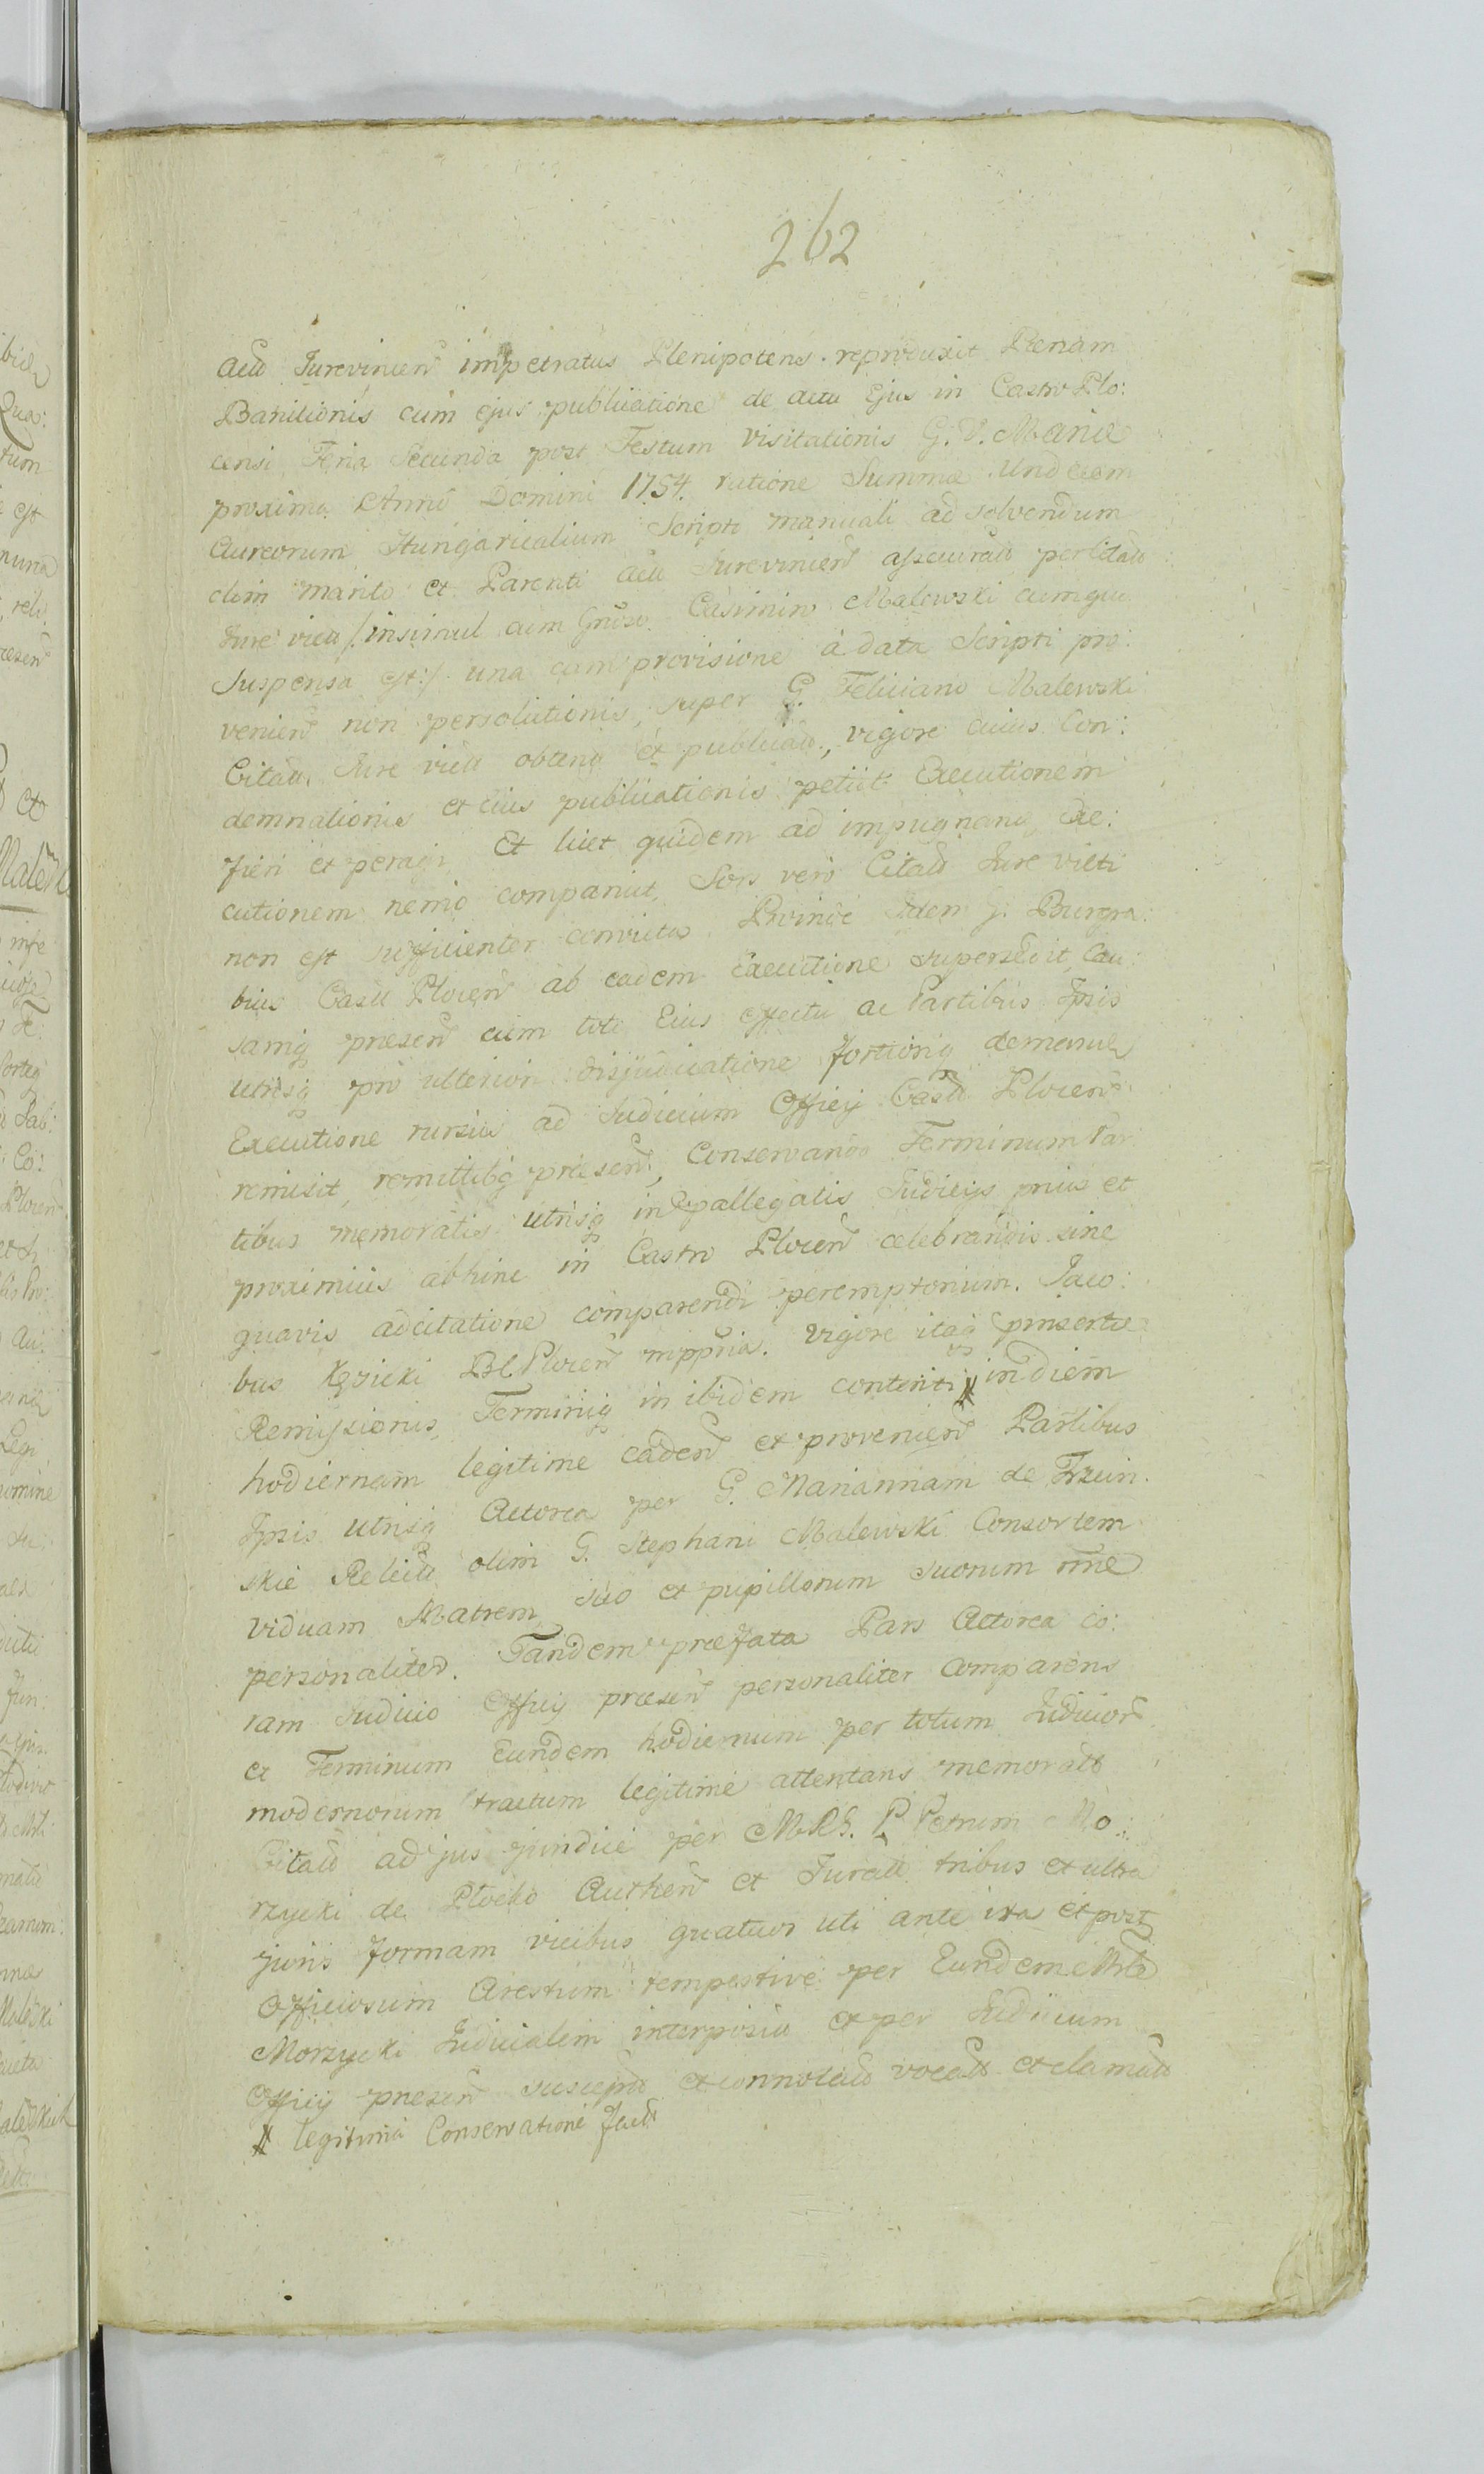 262
Actū Jurevincen̄ impetratus Plenipotens reproduxit Pænam
Banitionis cum ejus publicatione de actu Ejus in Castro Plo:
censi Feria Secunda post Festum Visitationis G. V. Mariæ
proxima Anno Domini 1754. ratione Summæ Undecem
Aureorum Hungaricalium Scripti manuali ad solvendum
olim marito et Parenti Actū Jurevincen̄ assecurat̄ per Citat̄
Jure vict̄ /: insimul cum Gnōso Casimiro Malewski cumquo
Suspensa est :/ una cum provisione à data Scripti pro:
venien̄ non persolutionis, super G. Feliciano Malewski
Citat̄ Jure vict̄ obtent̄ et publicat̄, vigore cuius Con:
demnationis et eius publicationis petiit Executionem
fieri et peragi. Et licet quidem ad impugnan̄ Exe:
cutionem nemo comparuit, Sors vero Citat̄ Jure victi
non est sufficienter convicta. Proinde Idem G. Burgra:
bius Castr̄ Plocen̄ ab eadem Executione supersedit, Cau:
samq̨ præsen̄ cum toto Eius effectu ac Partibus Ipsis
utrisq̨ pro ulteriori disjudicatione fortioriq̨ demanda
Executione rursus ad Judicium Officij Castr̄ Plocen̄
remisit, remittitq̨ præsen̄, Conservando Terminum Par
tibus memoratis utrisq̨ in præallegatis Judicijs prius et
proximius abhinc in Castro Plocen̄ celebrandis sine
quavis adcitatione comparendi peremptorium. Jaco:
bus Kęsicki BC Plocen̄ mppria. Vigore itaq̨ præsertæ
Remissionis, Terminiq̨ in ibidem contenti # in diem
hodiernam legitime caden̄ et provenien̄ Partibus
Ipsis utrisq̨ Actorea per G. Mariannam de Trzcin.
skie Relict̄ olim G. Stephani Malewski Consortem
Viduam Matrem suo et pupillorum suorum nn̄e
personaliter. Tandem præfata Pars Actorea co:
ram Judicio Officij præsen̄ personaliter Comparens
et Terminum Eundem hodiernum per totum Judicior̄
modernorum tractum legitime attentans memorat̄
Citat̄ ad jus juridice per MRG. P. Petrum Mo:
rzycki de Płocko Authen̄ et Jurat̄ tribus et ultra
juris formam vicibus quatuor uti ante ita et post
Officiosum Arestum tempestive per Eundem Mltē
Morzycki Judicialem interposit̄ et per Judicium
Officij præsen̄ suscept̄ et connotat̄ vocat̄ et clamat̄
# legitima Conservatione fact̄